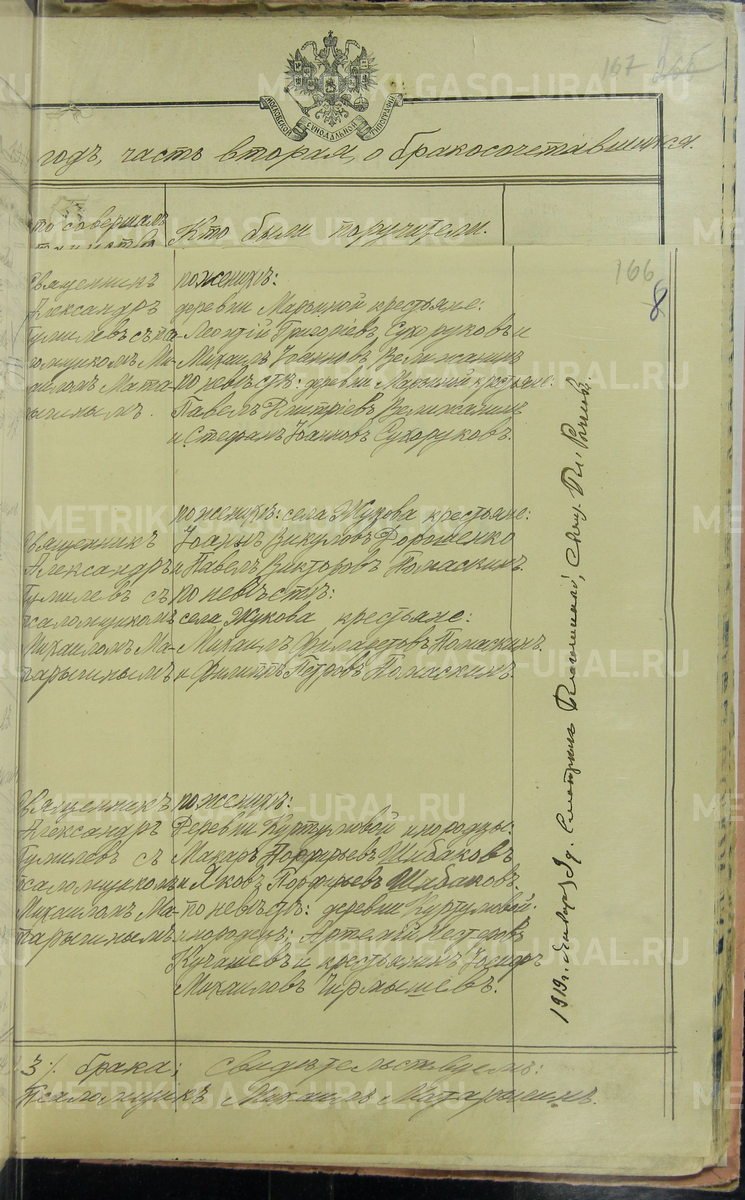 167
МОСКОВСКОЙ СУНОДАЛЬНОЙ ТИПОГРАФІИ
METRIKI.GASO-URAL.RU
годъ, часть вторая, о бракосочетавшихся.
Кто совершалъ
таинство
Кто были поручители.
166
Священникъ
Александръ
Гумилевъ съ пса-
ломщикомъ Ми-
хаиломъ Мата-
рыгинымъ.
по женихѣ:
деревни Марьиной крестьяне:
Леонтій Григоріевъ Сухоруковъ и
Михаилъ Іоанновъ Велижанинъ
по невѣстѣ: деревни Марьиной крестьяне:
Павелъ Дмитріевъ Велижанинъ
и Стефанъ Іоанновъ Сухоруковъ.
Священникъ
Александръ
Гумилевъ съ
псаломщикомъ
Михаиломъ Ма-
тарыгинымъ
по женихѣ: села Жукова крестьяне:
Іоаннъ Викуловъ Дорошенко
и Павелъ Викторовъ Помаскинъ.
по невѣстѣ:
села Жукова крестьяне:
Михаилъ Филаретовъ Помаскинъ
и Филиппъ Петровъ Помаскинъ.
Священникъ
Александръ
Гумилевъ съ
псаломщикомъ
Михаиломъ Ма-
тарыгинымъ
по женихѣ:
Деревни Куртумовой инородцы:
Макаръ Порфирьевъ Шабаковъ
и Яковъ Порфирьевъ Шабаковъ.
по невѣстѣ: деревни Куртумовой
инородецъ: Артемій Нестеровъ
Кучашевъ и крестьянинъ
Михаиловъ Чирмышевъ.
1919 г. Января 9 д. Смотрилъ Благочинный, Свящ.
3/. брака; Свидѣтельствуемъ:
Псаломщикъ Михаилъ Матарыгинъ.